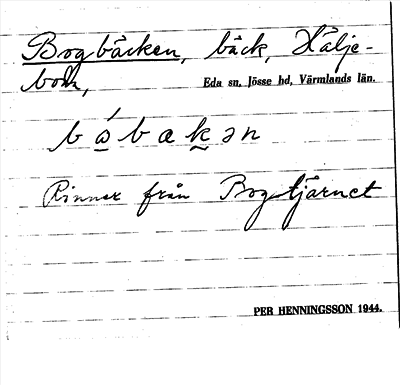 Bogbäcken, bäck, Hälje-
bom,
Eda sn, Jösse hd, Värmlands län.
Rinner från Bogtjärnet
PER HENNINGSSON 1944.